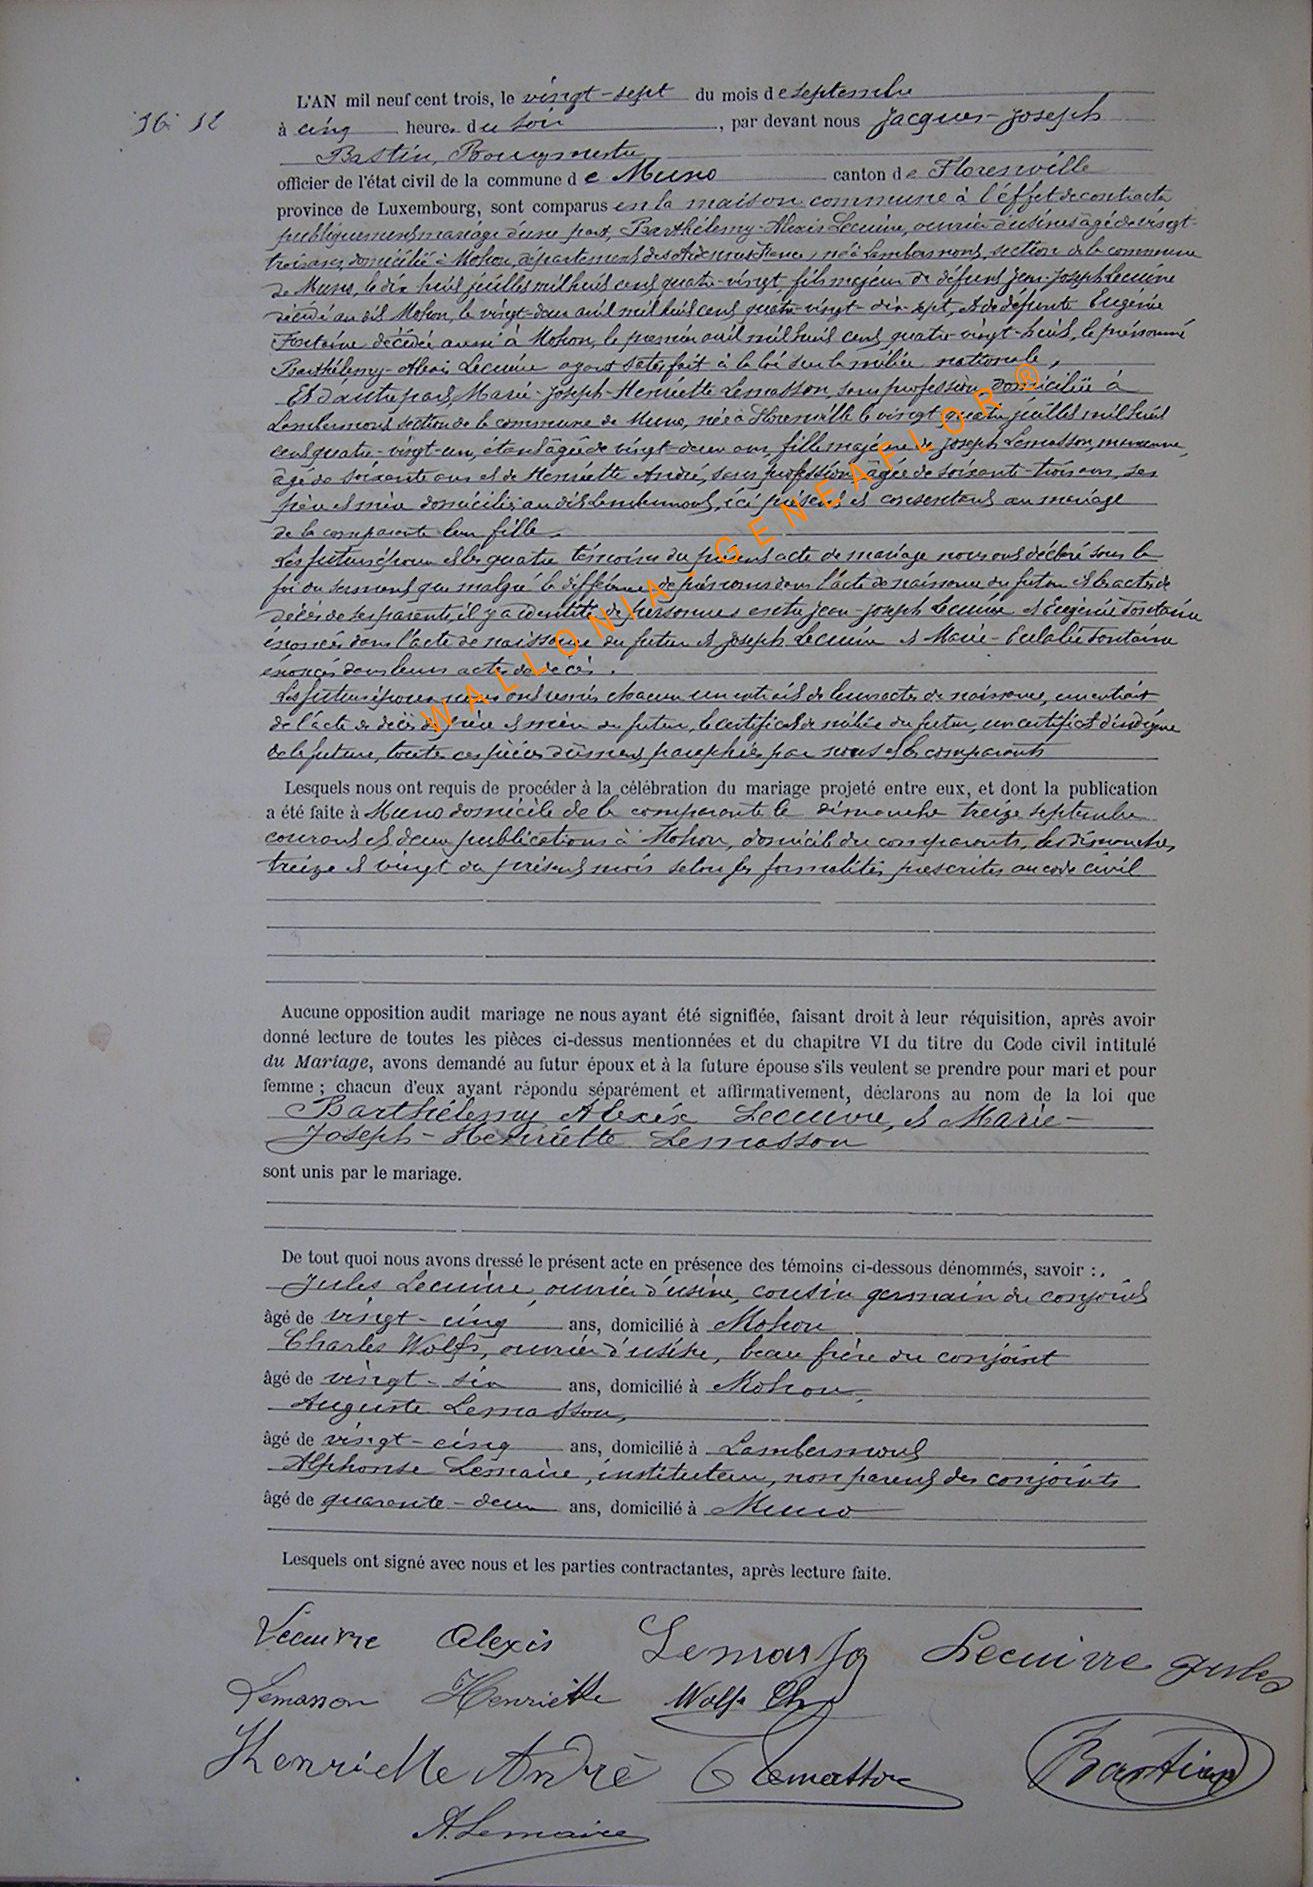 L'AN mil neuf cent trois, le vingt-sept du mois de septembre
16 12
à cinq heures du soir, par devant nous Jacques-Joseph
Bastin, Bourgmestre
officier de l'état civil de la commune de Muno canton de Florenville
province de Luxembourg, sont comparus en la maison commune à l'effet de contracter
publiquement mariage d'une part, Barthélemy-Alexis Lecuivre, ouvrier d'usines âgé de vingt-
trois ans, domicilié à Mohon, département des Ardennes France né à Lambermont, section de la commune
de Muno, le dix huit juillet mil huit cent quatre-vingt, fils majeur de défunt Jean-Joseph Lecuivre
décédé au dit Mohon, le vingt-deux avril mil huit cent quatre-vingt-dix-sept, et de défunte Eugénie
Fontaine décédée aussi à Mohon, le premier avril mil huit cent quatre vingt-huit, le prénommé
Barthélemy-Alexis Lecuivre ayant satisfait à la loi sur la milice nationale,
Et d'autre part, Marie-Joseph-Henriette Lemasson, sans profession domiciliée à
Lambermont section de la commune de Muno, née à Florenville le vingt quatre juillet mil huit
cent quatre-vingt-un, étant âgée de vingt-deux ans, fille majeure de Joseph Lemasson,
âgé de soixante ans et de Henriette André, sans profession âgée de soixante-trois ans, ses
père et mère domiciliés au dit Lambermont, ici présents et consentant au mariage
de la comparante leur fille.
Les futurs époux et les quatre témoins du présent acte de mariage nous ont déclaré sous la
foi du serment que malgré la différence de prénoms dans l'acte de naissance du futur et les actes de
décès de ses parents, il y a identité de personnes entre Jean-Joseph Lecuivre et Eugénie Fontaine
énoncés dans l'acte de naissance du futur et Joseph Lecuivre et Marie-Eulalie Fontaine
énoncés dans leurs actes de décès.
Les futurs époux nous ont remis chacun un extrait de leurs actes de naissance, un extrait
de l'acte de décès des père et mère du futur, le certificat de milice du futur, un certificat d'indigène
de la future, toutes ces pièces dûment paraphées par nous et les comparants
Lesquels nous ont requis de procéder à la célébration du mariage projeté entre eux, et dont la publication
a été faite à Muno domicile de la comparante le dimanche treize septembre
courant et deux publications à Mohon, domicile du comparants, les dimanches
treize et vingt du présent mois selon les formalités prescrites au code civil
Aucune opposition audit mariage ne nous ayant été signifiée, faisant droit à leur réquisition, après avoir
donné lecture de toutes les pièces ci-dessus mentionnées et du chapitre VI du titre du Code civil intitulé
du Mariage, avons demandé au futur époux et à la future épouse s'ils veulent se prendre pour mari et pour
femme ; chacun d'eux ayant répondu séparément et affirmativement, déclarons au nom de la loi que
Barthélemy Alexis Lecuivre, et Marie-
Joseph-Henriette Lemasson
sont unis par le mariage.
De tout quoi nous avons dressé le présent acte en présence des témoins ci-dessous dénommés, savoir :
Jules Lecuivre, ouvrier d'usine, cousin germain du conjoint
âgé de vingt-cinq ans, domicilié à Mohon
Charles Wolfs, ouvrier d'usine, beau frère du conjoint
âgé de vingt-six ans, domicilié à Mohon,
Auguste Lemasson,
âgé de vingt-cinq ans, domicilié à Lambermont
Alphonse Lemaire, instituteur, non parent des conjoints
âgé de quarante-deux ans, domicilié à Muno
Lesquels ont signé avec nous et les parties contractantes, après lecture faite.
Lecuivre Alexis Lecuivre Jules
Lemasson Henriette Wolfs Ch
Henriette André Lemasson Bastin
A. Lemaire
WALLONIA-GENEAFLOR ®